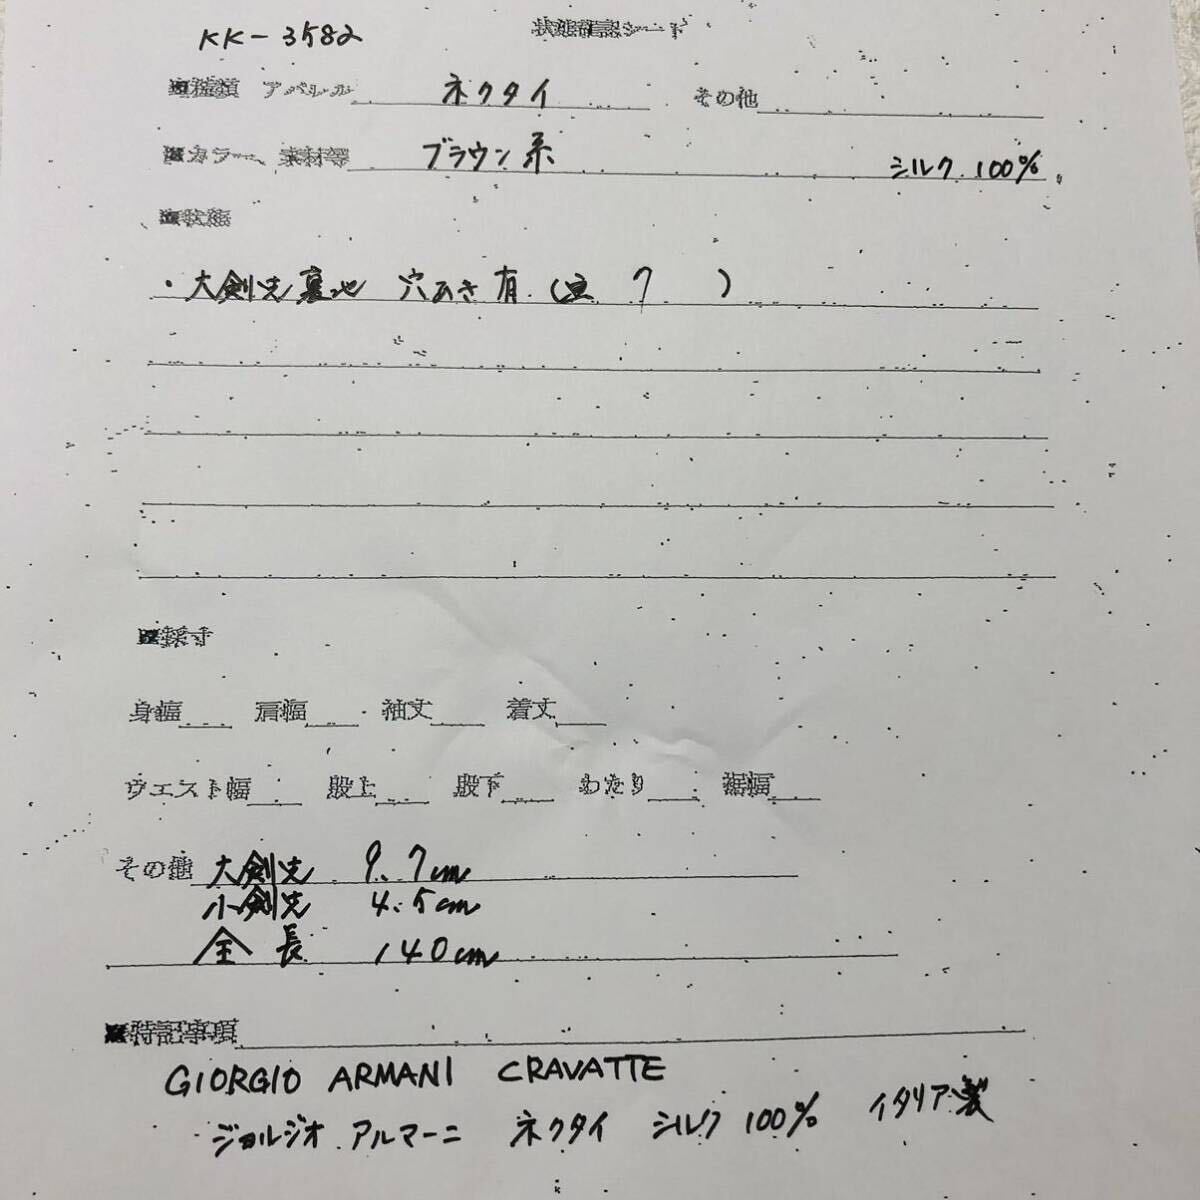 KK-3582 状態確認シート
■種類 アパレル ネクタイ その他
■カラー、素材等 ブラウン系 シルク 100%
■状態
・大剣先裏地 穴あき有 ( 7 )
■採寸
身幅 肩幅 袖丈 着丈
ウエスト幅 股上 股下 わたり 裾幅
その他 大剣先 9.7cm
小剣先 4.5cm
全長 140cm
■特記事項
GIORGIO ARMANI CRAVATTE
ジョルジオ アルマーニ ネクタイ シルク 100% イタリア製